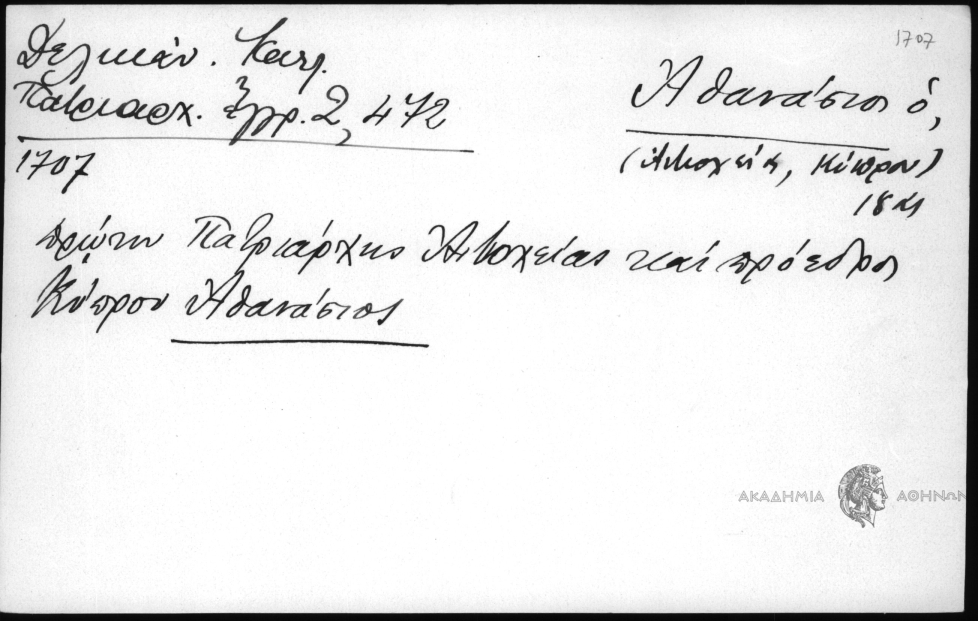 1707
Δελικάν. Κατ.
Πατριαρχ. Ἐγγρ. 2, 472
1707
Ἀθανάσιος ὁ,
(Ἀντιοχείας, Κύπρου)
πρώην Πατριάρχης Ἀντιοχείας καὶ πρόεδρος
Κύπρου Ἀθανάσιος
ΑΚΑΔΗΜΙΑ ΑΘΗΝΩΝ